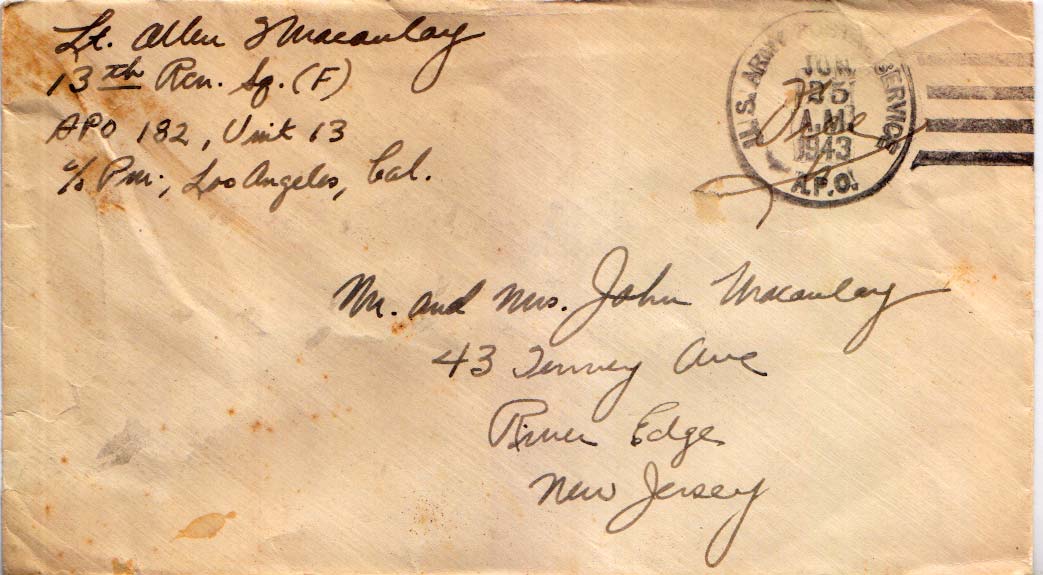 Lt. Allen J Macaulay
13th Rcn. Sq. (F)
APO 182, Unit 13
c/o Pm., Los Angeles, Cal.
U.S. ARMY POSTAL SERVICE
JUN
25
A.M.
1943
A.P.O.
Free
Mr. and Mrs. John Macaulay
43 Tenney Ave
River Edge
New Jersey